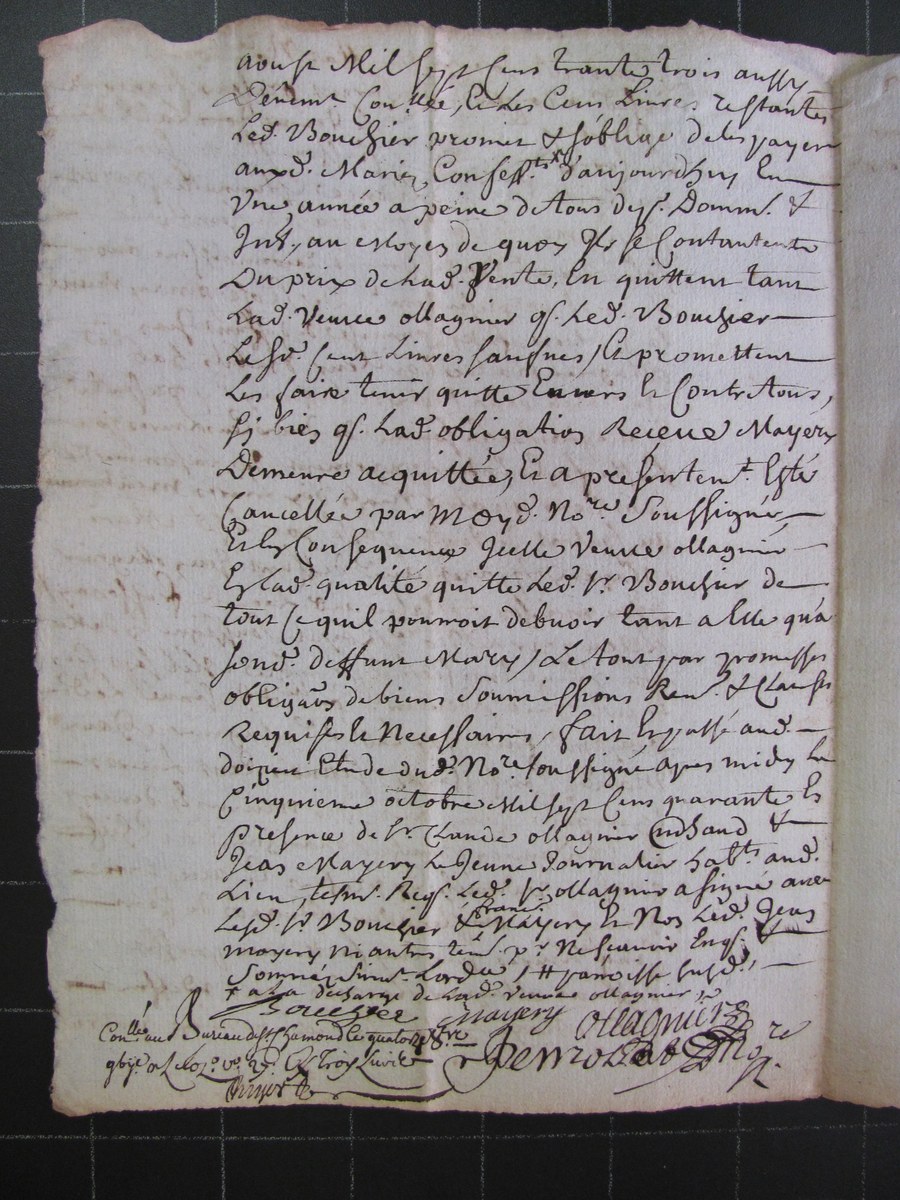 aoust Mil sept Cens trante trois aussy
Deuëmt. Conllée, Et Les Cens Livres restantes
Led. Bouchier promet & s'oblige de les payer
auxd. Mariez Confessts. x d'aujourdhuy En
Une année a peine de tous desp. Domm. &
Int., au moyen de quoy Ils se Contantent
Du prix de Lad. Vente, En quittent tant
Lad. Veuve ollagnier q. Led. Bouchier
Lesd. Cent Livres sauf nes / Et promettent
Les faire tenir quitte Envers & Contre tous,
Si bien q. Lad. obligation Receue Mayery
Demeure acquittée, Et a présentemt. Esté
Cancellée par Moyd. Nore. Soussigné,
Et En Consequence Icelle Veuve ollagnier
En Lad. qualité quitte Led. Sr. Bouchier de
tout Ce quil pourroit debvoir tant a Elle qu'a
sond. deffunt Mary / Le tout par promesses
obligaõns de biens Soumissions Ren. & Clauses
Requises & Necessaires, fait Et passé aud.
Etude dud. Nore. soussigné apres midy Le
Cinquieme octobre Mil sept Cens quarante En
presence de Sr. Claude ollagnier &
Jean Mayery Le Jeune Journalier habt. aud.
Lieu, tesm. Req. Led. Sr. ollagnier a signé avec
Lesd. Sr. Bouchier & franc. Mayery Et Non Led. Jean
mayery ni autres tem. pr. Ne Scavoir Enq. &
Sommé Suivt. Lordce / # parroisse susd.,
x a La décharge de Lad. Veuve ollagnier,
Bouchier Mayery Ollagnier
Conllé au Bureau de St. Chamond Le quatorze 8bre
Trois Livres
Nore